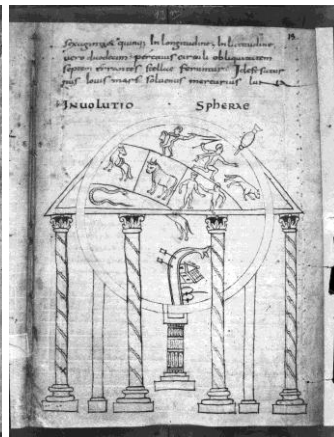 In longitudine; In latitudine
uero duodecim circuli obliquitatem
septem errantes stellae feruntur; Idest satur
nus Iouis mars sol uenus mercurius lu
INUOLUTIO SPHERAE